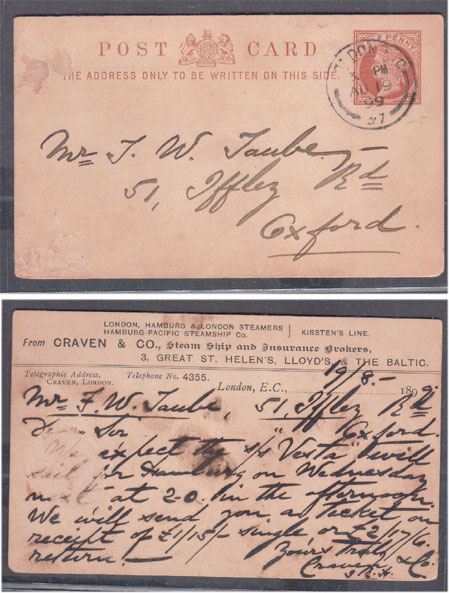 POST CARD
THE ADDRESS ONLY TO BE WRITTEN ON THIS SIDE.
HALFPENNY
LONDON E.C.
PM
AU 19
99
37
Mr. J. W. Taube
51, Iffley Rd
Oxford.
LONDON, HAMBURG & LONDON STEAMERS
HAMBURG-PACIFIC STEAMSHIP Co.
KIRSTEN'S LINE.
From CRAVEN & CO., Steam Ship and Insurance Brokers,
3, GREAT ST. HELEN'S, LLOYD'S, & THE BALTIC.
Telegraphic Address, CRAVEN, LONDON.
Telephone No. 4355.
London, E.C., 19/8.- 1899.
Mr. F. W. Taube, 51, Iffley Rd
Oxford.
Dear Sir
We expect the s/s "Vesta" will
sail for Hamburg on Wednesday
next at 2 o. in the afternoon.
We will send you a ticket on
receipt of £1/15/- single or £2/17/6
return.-
Yours truly
Craven & Co.